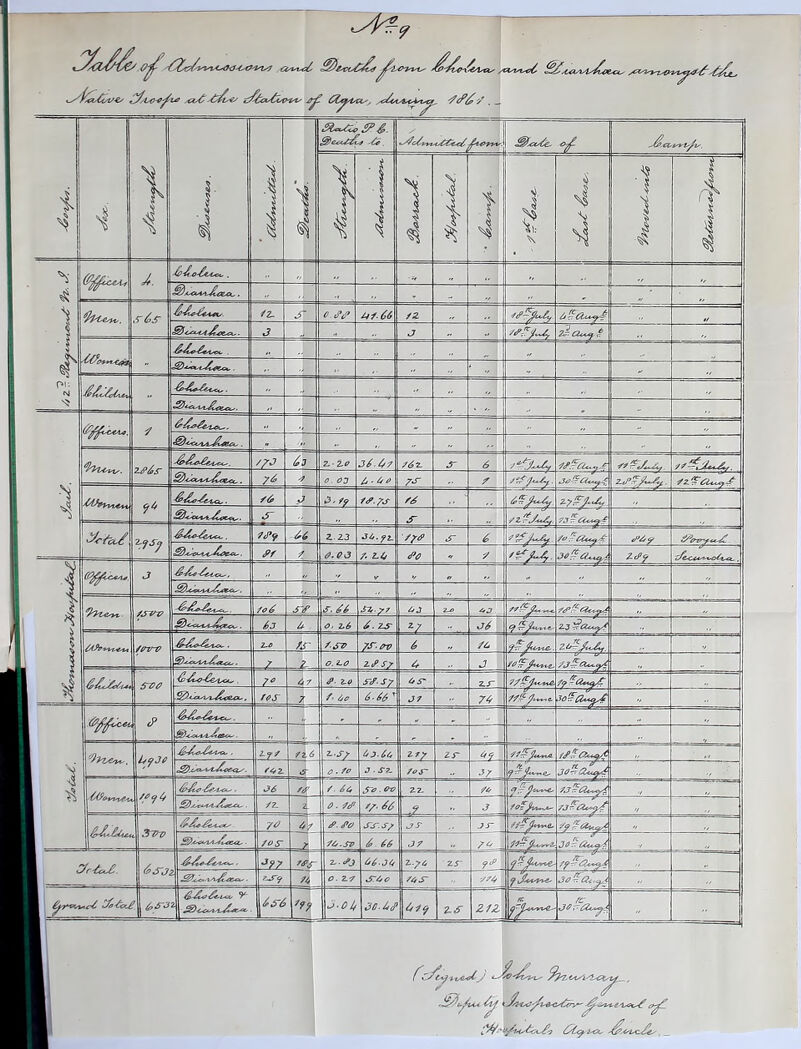 No. 9
Table of Admissions and Deaths from Cholera and Diarrhœa amongst the
Native Troops at the Station of Agra, during 1861.
Corps. Sex. Strength. Diseases. Admitted. Deaths. Ratio P. C. Deaths to Strength. Admission Admitted from Barrack. Hospital. Camp. Date of 1st Case. Last Case. Camp. Moved into Returned from
42d Regiment N. I.
Officers 4. Cholera.
Diarrhœa.
Men. 565 Cholera 12 5 0.88 41.66 12 18th July 4th Augt
Diarrhœa. 3 3 18th July 2d Augt
Women Cholera.
Diarrhœa.
Children Cholera.
Diarrhœa.
Jail.
Officers. 1 Cholera.
Diarrhœa.
Men. 2865 Cholera. 173 63 2.20 36.41 162 5 6 1st July 18th Augt 11th July 11th July.
Diarrhœa. 76 1 0.03 4.40 75 1 1st July. 30th Augt 28th July. 12th Augt
Women 94 Cholera. 16 3 3.19 18.75 16 6th July 27th July
Diarrhœa. 5 5 12th July 13th Augt
Total. 2959 Cholera. 189 66 2.23 34.92 178 5 6 1st July. 10th Augt 849 Pooyah.
Diarrhœa. 81 1 0.03 1.24 80 1 1st July. 30th Augt 289 Secundra.
Thomason Hospital
Officers. 3 Cholera.
Diarrhœa.
Men 1500 Cholera. 106 58 5.66 54.71 43 20 43 11th June 18th Augt
Diarrhœa. 63 4 0.26 6.25 27 36 9th June 23d Augt
Women 1000 Cholera. 20 15 1.50 75.00 6 14 9th June. 24th July.
Diarrhœa. 7 2 0.20 28.57 4 3 10th June 13th Augt
Children 500 Cholera. 70 41 8.20 58.57 45 25 11th June 19th Augt
Diarrhœa. 105 7 1.40 6.66 31 74 11th June 30th Augt
Total.
Officers 8 Cholera.
Diarrhœa.
Men. 4930 Cholera. 291 126 2.57 43.64 217 25 49 11th June 18th Augt
Diarrhœa. 142 5 0.10 3.52 105 37 9th June 30th Augt
Women 1094 Cholera. 36 18 1.64 50.00 22 14 9th June 13th Augt
Diarrhœa. 12 2 0.18 17.66 9 3 10th June 13th Augt
Children 500 Cholera 70 41 8.80 55.57 35 35 11th June 19th Augt
Diarrhœa. 105 7 14.50 6.66 31 74 11th June. 30th Augt
Total. 6532 Cholera. 397 185 2.83 46.34 274 25 98 9th June 19th Augt
Diarrhœa. 259 14 0.21 5.40 145 114 9 June 30th Augt
Grand Total 6532 Cholera & Diarrhœa. 656 199 3.04 30.48 419 25 212 9th June 30th Augt
(Signed) John Murray,
Deputy Inspector General of
Hospitals Agra Circle.